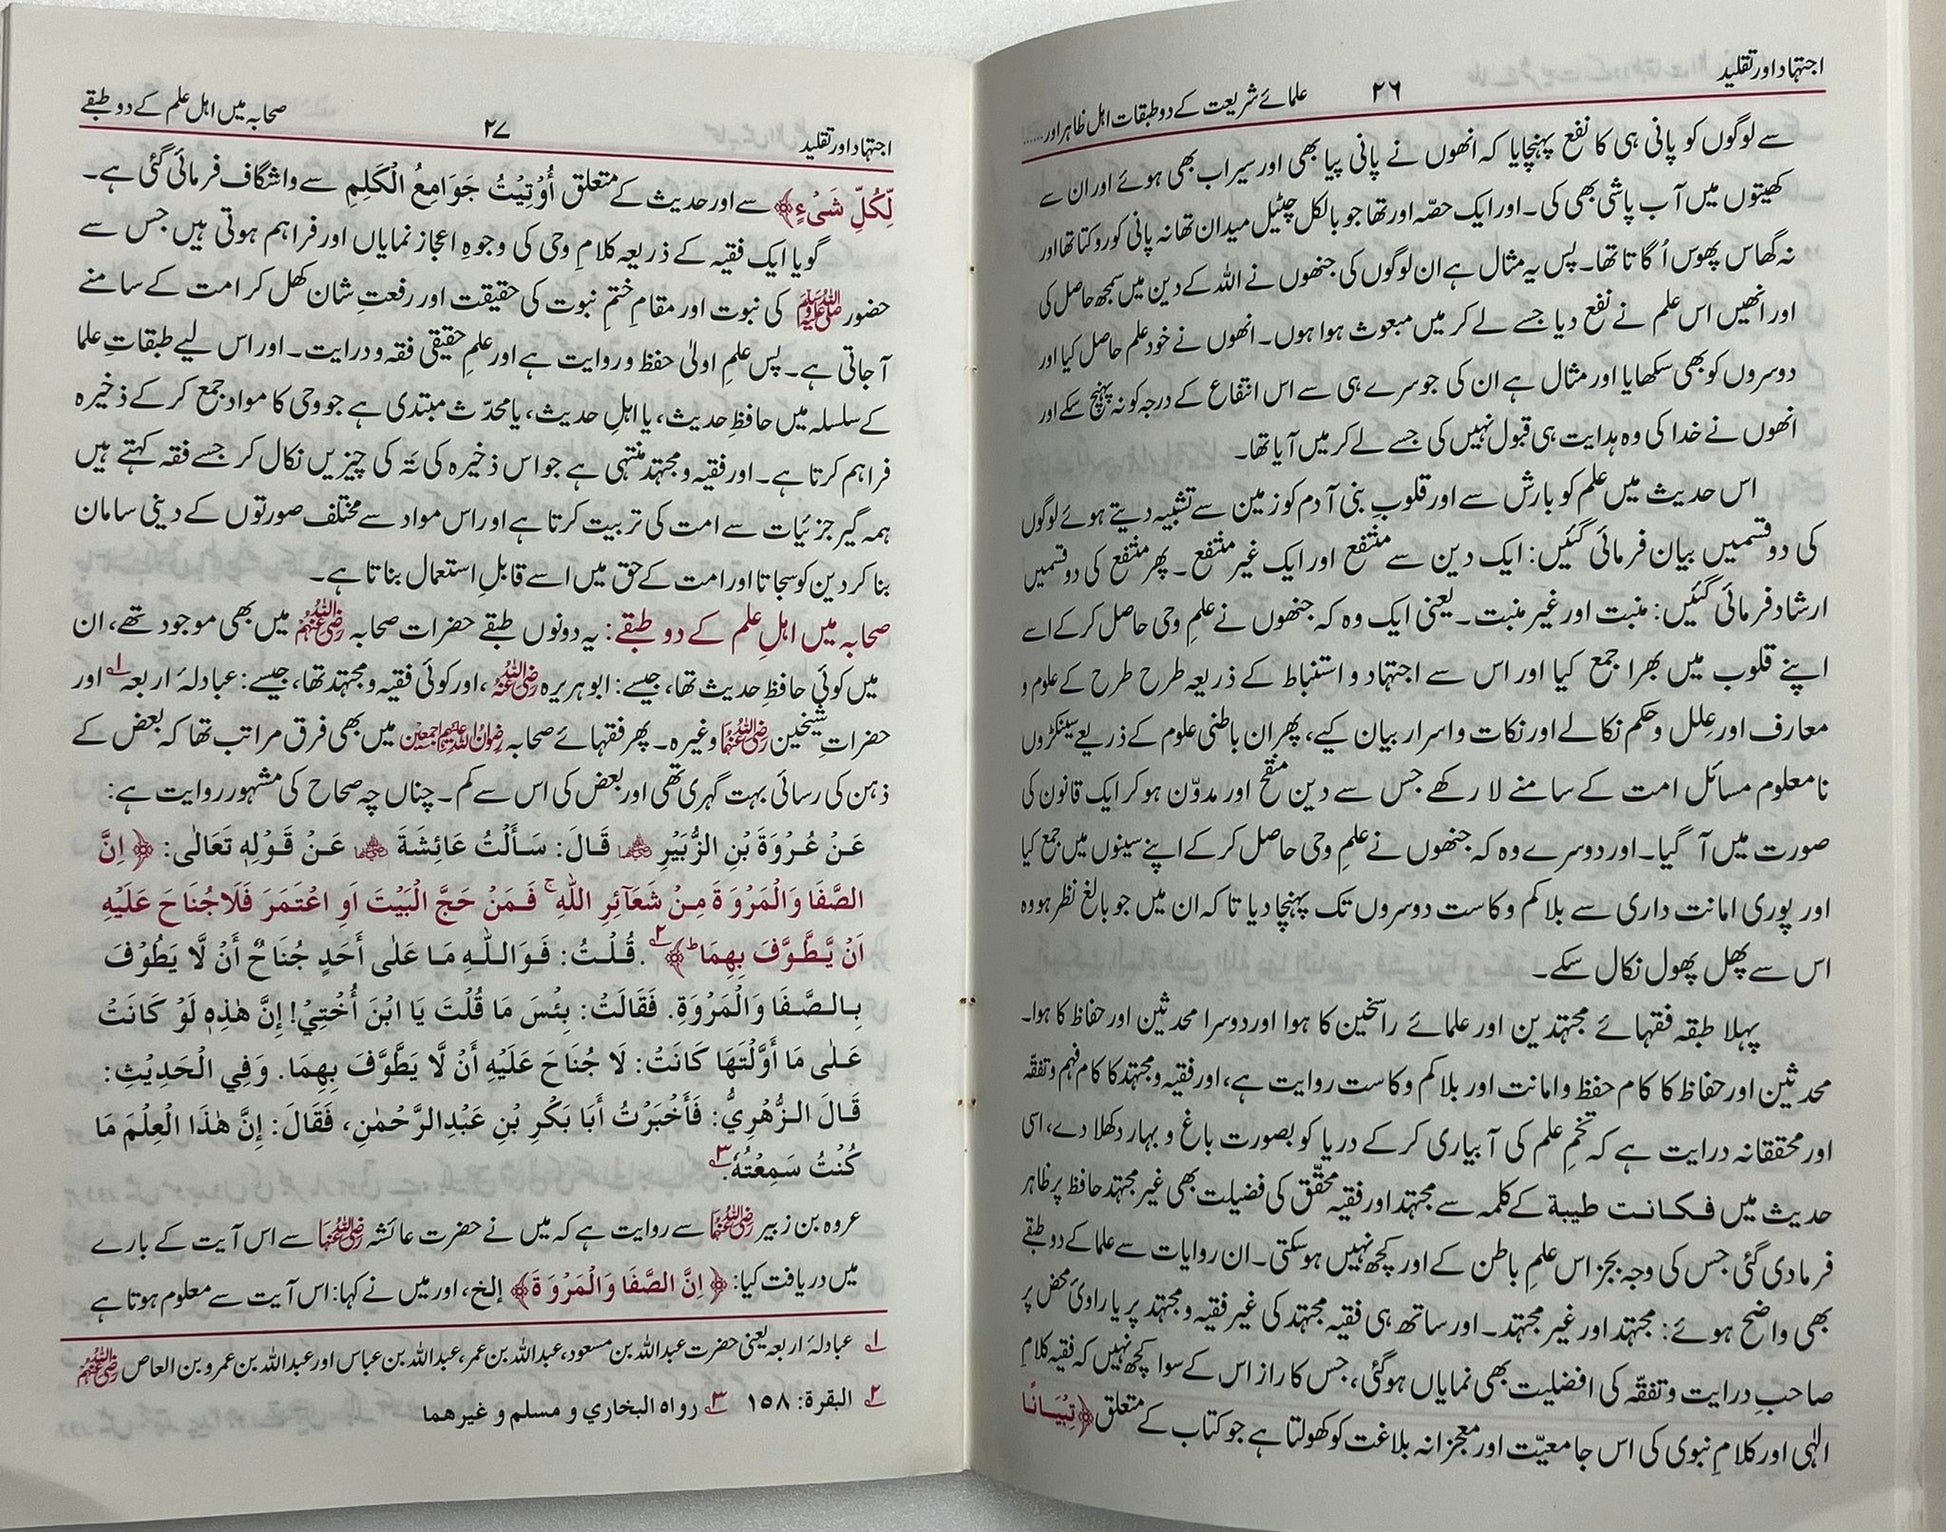 اجتہاد اور تقلید ۲۶ علمائے شریعت کے دو طبقات اہل ظاہر اور......
سے لوگوں کو پانی ہی کا نفع پہنچایا کہ انھوں نے پانی پیا بھی اور سیراب بھی ہوئے اور ان سے
کھیتوں میں آب پاشی بھی کی۔ اور ایک حصّہ اور تھا جو بالکل چٹیل میدان تھا نہ پانی کو روکتا تھا اور
نہ گھاس پھوس اُگاتا تھا۔ پس یہ مثال ہے ان لوگوں کی جنھوں نے اللہ کے دین میں سمجھ حاصل کی
اور انھیں اس علم نے نفع دیا جسے لے کر میں مبعوث ہوا ہوں۔ انھوں نے خود علم حاصل کیا اور
دوسروں کو بھی سکھایا اور مثال ہے ان کی جو سرے ہی سے اس انتفاع کے درجہ کو نہ پہنچ سکے اور
انھوں نے خدا کی وہ ہدایت ہی قبول نہیں کی جسے لے کر میں آیا تھا۔
اس حدیث میں علم کو بارش سے اور قلوب بنی آدم کو زمین سے تشبیہ دیتے ہوئے لوگوں
کی دو قسمیں بیان فرمائی گئیں: ایک دین سے منتفع اور ایک غیر منتفع۔ پھر منتفع کی دو قسمیں
ارشاد فرمائی گئیں: منبت اور غیر منبت۔ یعنی ایک وہ کہ جنھوں نے علمِ وحی حاصل کر کے اسے
اپنے قلوب میں بھرا جمع کیا اور اس سے اجتہاد و استنباط کے ذریعہ طرح طرح کے علوم و
معارف اور عِلل و حکم نکالے اور نکات و اسرار بیان کیے، پھر ان باطنی علوم کے ذریعے سینکڑوں
نا معلوم مسائل امت کے سامنے لا رکھے جس سے دین منقح اور مدوّن ہو کر ایک قانون کی
صورت میں آ گیا۔ اور دوسرے وہ کہ جنھوں نے علمِ وحی حاصل کر کے اپنے سینوں میں جمع کیا
اور پوری امانت داری سے بلا کم وکاست دوسروں تک پہنچا دیا تا کہ ان میں جو بالغ نظر ہو وہ
اس سے پھل پھول نکال سکے۔
پہلا طبقہ فقہائے مجتہدین اور علمائے راسخین کا ہوا اور دوسرا محدثین اور حفاظ کا ہوا۔
محدثین اور حفاظ کا کام حفظ وامانت اور بلا کم وکاست روایت ہے، اور فقیہ و مجتہد کا کام فہم و تفقّہ
اور محققانہ درایت ہے کہ تخمِ علم کی آبیاری کر کے دریا کو بصورت باغ و بہار دکھلا دے، اسی
حدیث میں فـکـانـت طيبة کے کلمہ سے مجتہد اور فقیہ محقّق کی فضیلت بھی غیر مجتہد حافظ پر ظاہر
فرما دی گئی جس کی وجہ بجز اس علمِ باطن کے اور کچھ نہیں ہو سکتی۔ ان روایات سے علما کے دو طبقے
بھی واضح ہوئے: مجتہد اور غیر مجتہد۔ اور ساتھ ہی فقیہ مجتہد کی غیر فقیہ و مجتہد پر یا راویٔ محض پر
صاحبِ درایت و تفقّہ کی افضلیت بھی نمایاں ہو گئی، جس کا راز اس کے سوا کچھ نہیں کہ فقیہ کلامِ
الٰہی اور کلامِ نبوی کی اس جامعیّت اور معجزانہ بلاغت کو کھولتا ہے جو کتاب کے متعلق ﴿تِبْيَانًا
اجتہاد اور تقلید ۲۷ صحابہ میں اہل علم کے دو طبقے
لِّكُلِّ شَىْءٍ﴾ سے اور حدیث کے متعلق أُوْتِيْتُ جَوَامِعُ الْكَلِمِ سے واشگاف فرمائی گئی ہے۔
گویا ایک فقیہ کے ذریعہ کلامِ وحی کی وجوہِ اعجاز نمایاں اور فراہم ہوتی ہیں جس سے
حضور ﷺ کی نبوت اور مقامِ ختمِ نبوت کی حقیقت اور رفعتِ شان کھل کر امت کے سامنے
آ جاتی ہے۔ پس علمِ اولیٰ حفظ و روایت ہے اور علمِ حقیقی فقہ و درایت۔ اور اس لیے طبقاتِ علما
کے سلسلہ میں حافظِ حدیث، یا اہلِ حدیث، یا محدّث مبتدی ہے جو وحی کا مواد جمع کر کے ذخیرہ
فراہم کرتا ہے۔ اور فقیہ و مجتہد منتہی ہے جو اس ذخیرہ کی تہ کی چیزیں نکال کر جسے فقہ کہتے ہیں
ہمہ گیر جزئیات سے امت کی تربیت کرتا ہے اور اس مواد سے مختلف صورتوں کے دینی سامان
بنا کر دین کو سجاتا اور امت کے حق میں اسے قابلِ استعمال بناتا ہے۔
صحابہ میں اہلِ علم کے دو طبقے: یہ دونوں طبقے حضرات صحابہ رضی اللہ عنہم میں بھی موجود تھے، ان
میں کوئی حافظِ حدیث تھا، جیسے: ابو ہریرہ رضی اللہ عنہ، اور کوئی فقیہ و مجتہد تھا، جیسے: عبادلۂ اربعہ ۱ اور
حضراتِ شیخین رضی اللہ عنہما وغیرہ۔ پھر فقہائے صحابہ رضوان اللہ علیہم اجمعین میں بھی فرق مراتب تھا کہ بعض کے
ذہن کی رسائی بہت گہری تھی اور بعض کی اس سے کم۔ چناں چہ صحاح کی مشہور روایت ہے:
عَـنْ عُـرْوَةَ بْنِ الزُّبَيْرِ رضی اللہ عنہما قَـالَ: سَـأَلْتُ عَائِشَةَ رضی اللہ عنہا عَـنْ قَـوْلِهٖ تَعَالٰى: ﴿ اِنَّ
الصَّفَا وَالْمَرْوَةَ مِـنْ شَعَآئِرِ اللّٰهِ ۚ فَـمَنْ حَجَّ الْبَيْتَ اَوِ اعْتَمَرَ فَلَا جُنَاحَ عَلَيْهِ
اَنْ يَّـطَّـوَّفَ بِهِمَا ؕ﴾ ۲. قُـلْـتُ: فَـوَالـلّٰـهِ مَـا عَلٰى أَحَدٍ جُنَاحٌ أَنْ لَّا يَطُوْفَ
بِـالـصَّـفَا وَالْمَرْوَةِ. فَقَالَتْ: بِئْسَ مَا قُلْتَ يَا ابْنَ أُخْتِيْ! إِنَّ هٰذِهٖ لَوْ كَانَتْ
عَـلٰى مَا أَوَّلْتَهَا كَانَتْ: لَا جُنَاحَ عَلَيْهِ أَنْ لَّا يَطَّوَّفَ بِهِمَا. وَفِي الْحَدِيْثِ:
قَـالَ الـزُّهْرِيُّ: فَأَخْبَرْتُ أَبَا بَكْرِ بْنِ عَبْدِ الرَّحْمٰنِ، فَقَالَ: إِنَّ هٰذَا الْعِلْمَ مَا
كُنْتُ سَمِعْتُهٗ. ۳
عروہ بن زبیر رضی اللہ عنہما سے روایت ہے کہ میں نے حضرت عائشہ رضی اللہ عنہا سے اس آیت کے بارے
میں دریافت کیا: ﴿ اِنَّ الصَّفَا وَالْمَرْوَةَ﴾ إلخ، اور میں نے کہا: اس آیت سے معلوم ہوتا ہے
۱ عبادلۂ اربعہ یعنی حضرت عبد اللہ بن مسعود، عبد اللہ بن عمر، عبد اللہ بن عباس اور عبد اللہ بن عمرو بن العاص رضی اللہ عنہم
۲ البقرة: ۱۵۸ ۳ رواه البخاري و مسلم و غيرهما